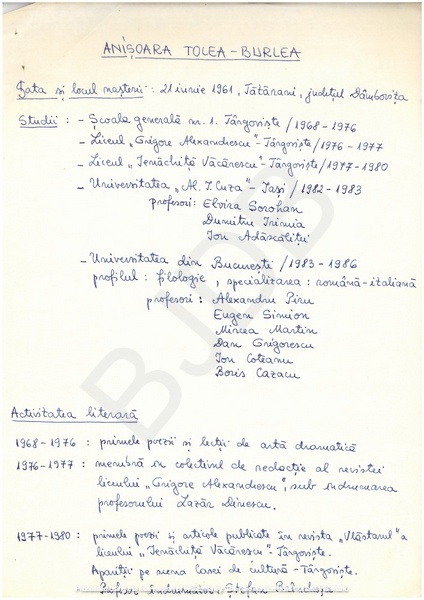 ANIȘOARA TOLEA - BURLEA
Data și locul nașterii : 21 iunie 1961, Tătărani, județul Dâmbovița
Studii : - Școala generală nr. 1. Târgoviște / 1968 - 1976
- Liceul „Grigore Alexandrescu" - Târgoviște / 1976 - 1977
- Liceul „Ienăchiță Văcărescu" - Târgoviște / 1977 - 1980
- Universitatea „Al. I. Cuza" - Iași / 1982 - 1983
profesori : Elvira Sorohan
Dumitru Irimia
Ion Adăscăliței
- Universitatea din București / 1983 - 1986
profilul : filologie, specializarea : română-italiană
profesori : Alexandru Piru
Eugen Simion
Mircea Martin
Dan Grigorescu
Ion Coteanu
Boris Cazacu
BJDB
Activitatea literară
1968 - 1976 : primele poezii și lecții de artă dramatică
1976 - 1977 : membră în colectivul de redacție al revistei
liceului „Grigore Alexandrescu", sub îndrumarea
profesorului Lazăr Dincscu.
1977 - 1980 : primele poezii și articole publicate în revista „Vlăstarul" a
liceului „Ienăchiță Văcărescu" - Târgoviște.
Apariții pe scena Casei de cultură - Târgoviște.
Ștefan